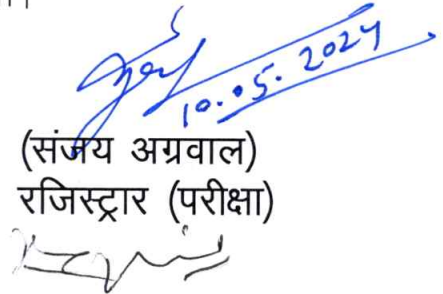 10.05.2024
(संजय अग्रवाल)
रजिस्ट्रार (परीक्षा)